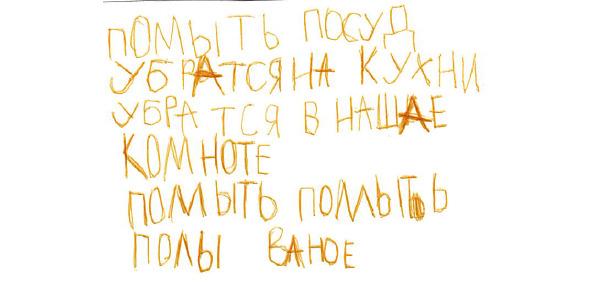 ПОМЫТЬ ПОСУД
УБРАТСЯ НА КУХНИ
УБРАТСЯ В НАШАЕ
КОМНОТЕ
ПОМЫТЬ
ПОЛЫ ВАНОЕ